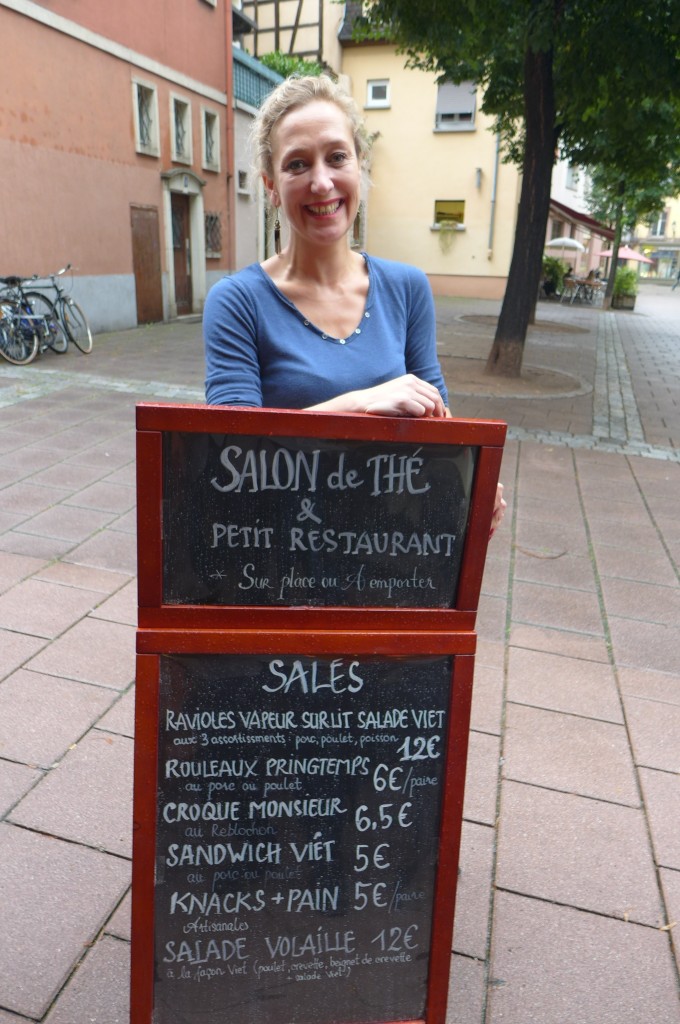 SALON de THÉ
&
PETIT RESTAURANT
* Sur place ou A emporter
SALÉS
RAVIOLES VAPEUR SUR LIT SALADE VIET
aux 3 assortissments : porc, poulet, poisson 12€
ROULEAUX PRINGTEMPS 6€/paire
au porc ou poulet
CROQUE MONSIEUR 6,5€
au Reblochon
SANDWICH VIÊT 5€
au porc ou poulet
KNACKS + PAIN 5€/paire
Artisanales
SALADE VOLAILLE 12€
à la façon Viet (poulet, crevette, beignet de crevette
+ salade Viet)